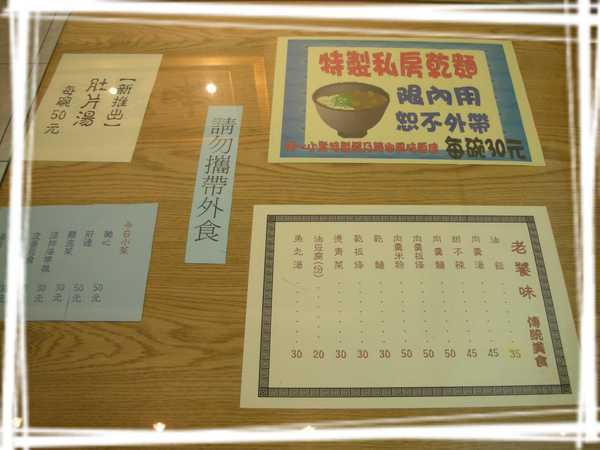 【新推出】
肚片湯
每碗50元
請勿攜帶外食
特製私房乾麵
限內用
恕不外帶
每碗30元
老饕味 傳統美食
油飯 35
肉羹湯 45
甜不辣 45
肉羹麵 50
肉羹 50
肉羹米粉 50
乾麵 30
乾板條 30
燙青菜 30
油豆腐(分) 20
魚丸湯 30
今日小菜
50元
肝連 50元
50元
50元
皮蛋豆腐 50元